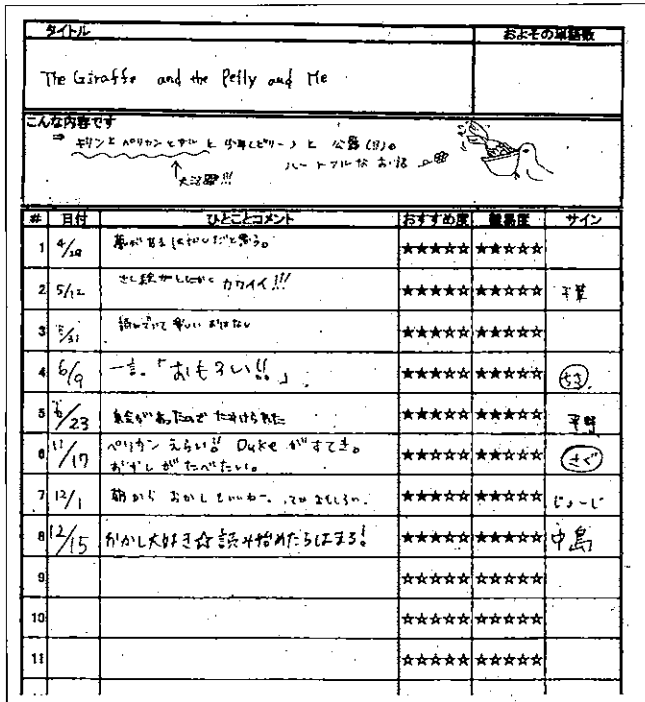 タイトル およその単語数
The Giraffe and the Pelly and Me
こんな内容です
⇒ キリンとペリカンとサルと少年(ビリー)と公爵(の)。
ハートフルなお話
↑
大活躍!!!
# 日付 ひとことコメント おすすめ度 難易度 サイン
1 4/28 ★★★★☆ ★★★☆☆
2 5/12 さし絵がとにかくカワイイ!!! ★★★★☆ ★★☆☆☆ 千葉
3 5/31 読んでいて楽しいおはなし ★★★★☆ ★★☆☆☆
4 6/9 一言。「おもろい!!」. ★★★★☆ ★★★☆☆ ちさ
5 6/23 絵があったのでたすけられた ★★★★☆ ★★★☆☆ 平野
6 11/17 ペリカンえらい!! Dukeがすてき。
おかしがたべたい。 ★★★★☆ ★★★☆☆ さぐ
7 12/1 朝からおかしもいいねー。 ★★★★☆ ★★★☆☆ じょーじ
8 12/15 おかし大好き☆読み始めたらはまる! ★★★★☆ ★★★☆☆ 中島
9 ☆☆☆☆☆ ☆☆☆☆☆
10 ☆☆☆☆☆ ☆☆☆☆☆
11 ☆☆☆☆☆ ☆☆☆☆☆